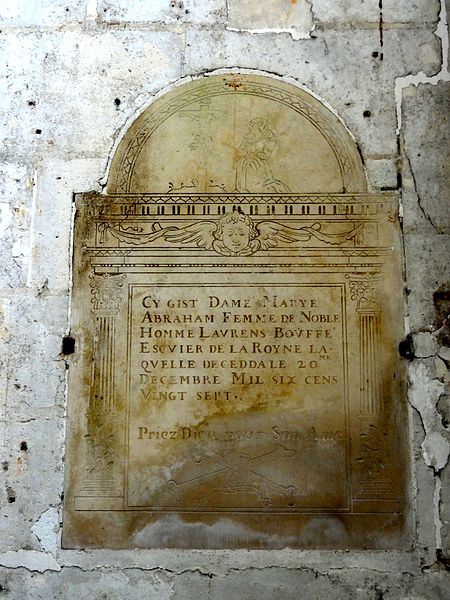 CY GIST DAME MARYE
ABRAHAM FEMME DE NOBLE
HOMME LAVRENS BOVFFE
ESCVIER DE LA ROYNE LA-
QVELLE DECEDDA LE 20ME
DECEMBRE MIL SIX CENS
VINGT SEPT.
Priez Diev povr Son Ame